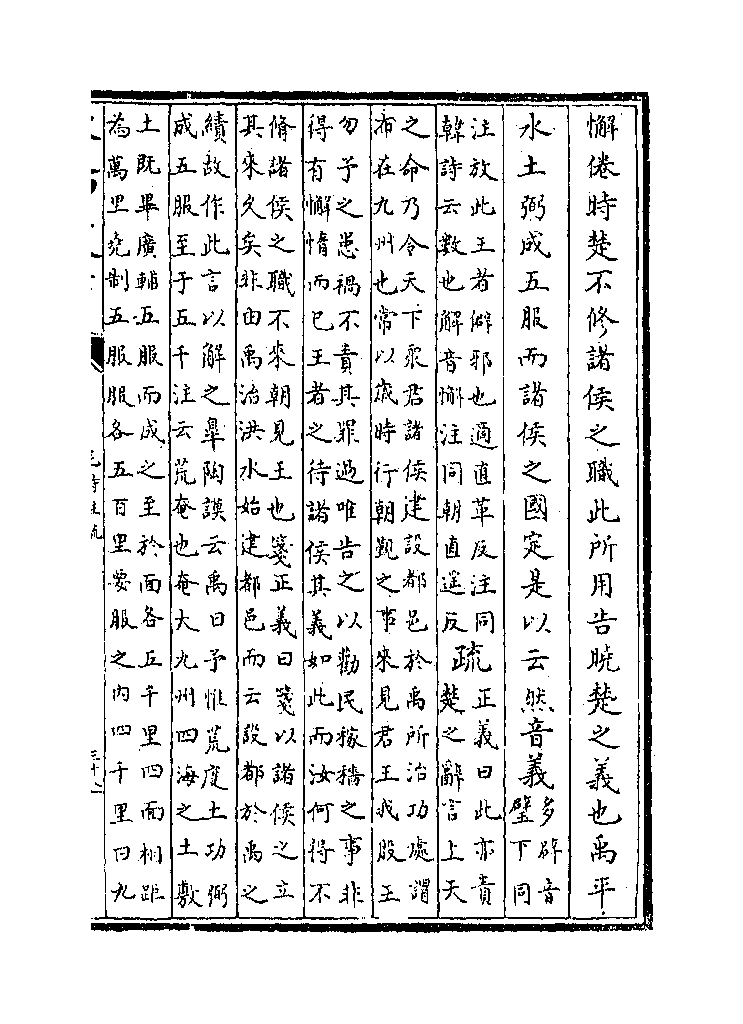 懈倦時楚不修諸侯之職此所用告曉楚之義也禹平
水土弼成五服而諸侯之國定是以云然音義多辟音
璧下同
注放此王者僻邪也適直革反注同
韓詩云數也解音懈注同朝直遥反
疏正義曰此亦責
楚之辭言上天
之命乃令天下衆君諸侯建設都邑於禹所治功處謂
布在九州也常以歲時行朝覲之事來見君王我殷王
勿予之患禍不責其罪過唯告之以勸民稼穡之事非
得有懈惰而已王者之待諸侯其義如此而汝何得不
脩諸侯之職不來朝見王也箋正義曰箋以諸侯之立
其來久矣非由禹治洪水始建都邑而云設都於禹之
績故作此言以解之臯陶謨云禹曰予惟荒度土功弼
成五服至于五千注云荒奄也奄大九州四海之土敷
土既畢廣輔五服而成之至於面各五千里四面相距
為萬里堯制五服服各五百里要服之内四千里曰九
毛詩注疏